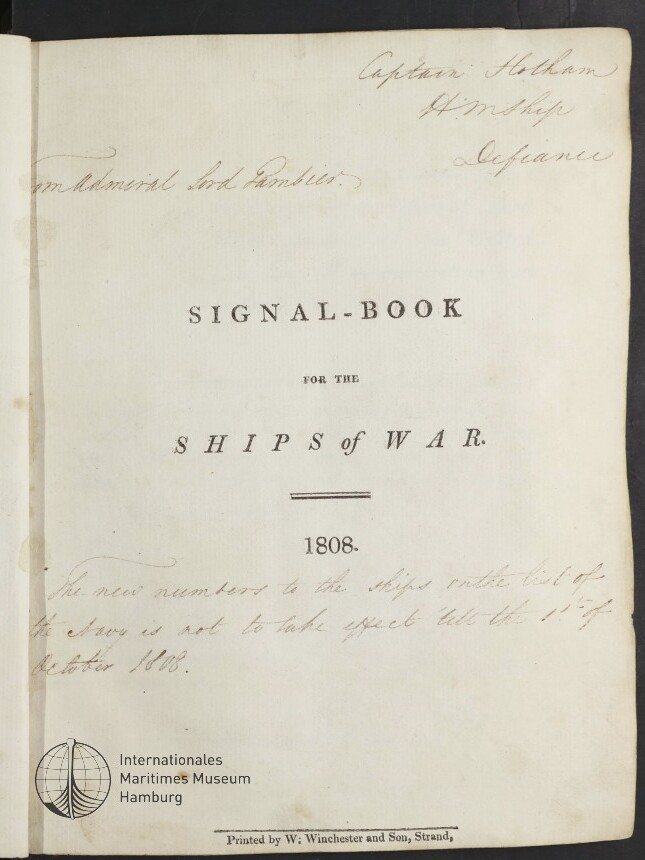 Captain Hotham
H M Ship
Defiance
om Admiral Lord Gambier.
SIGNAL-BOOK
FOR THE
SHIPS of WAR.
1808.
The new numbers to the ships on the list of
the Navy is not to take effect till the 1st of
October 1808.
Internationales
Maritimes Museum
Hamburg
Printed by W: Winchester and Son, Strand,